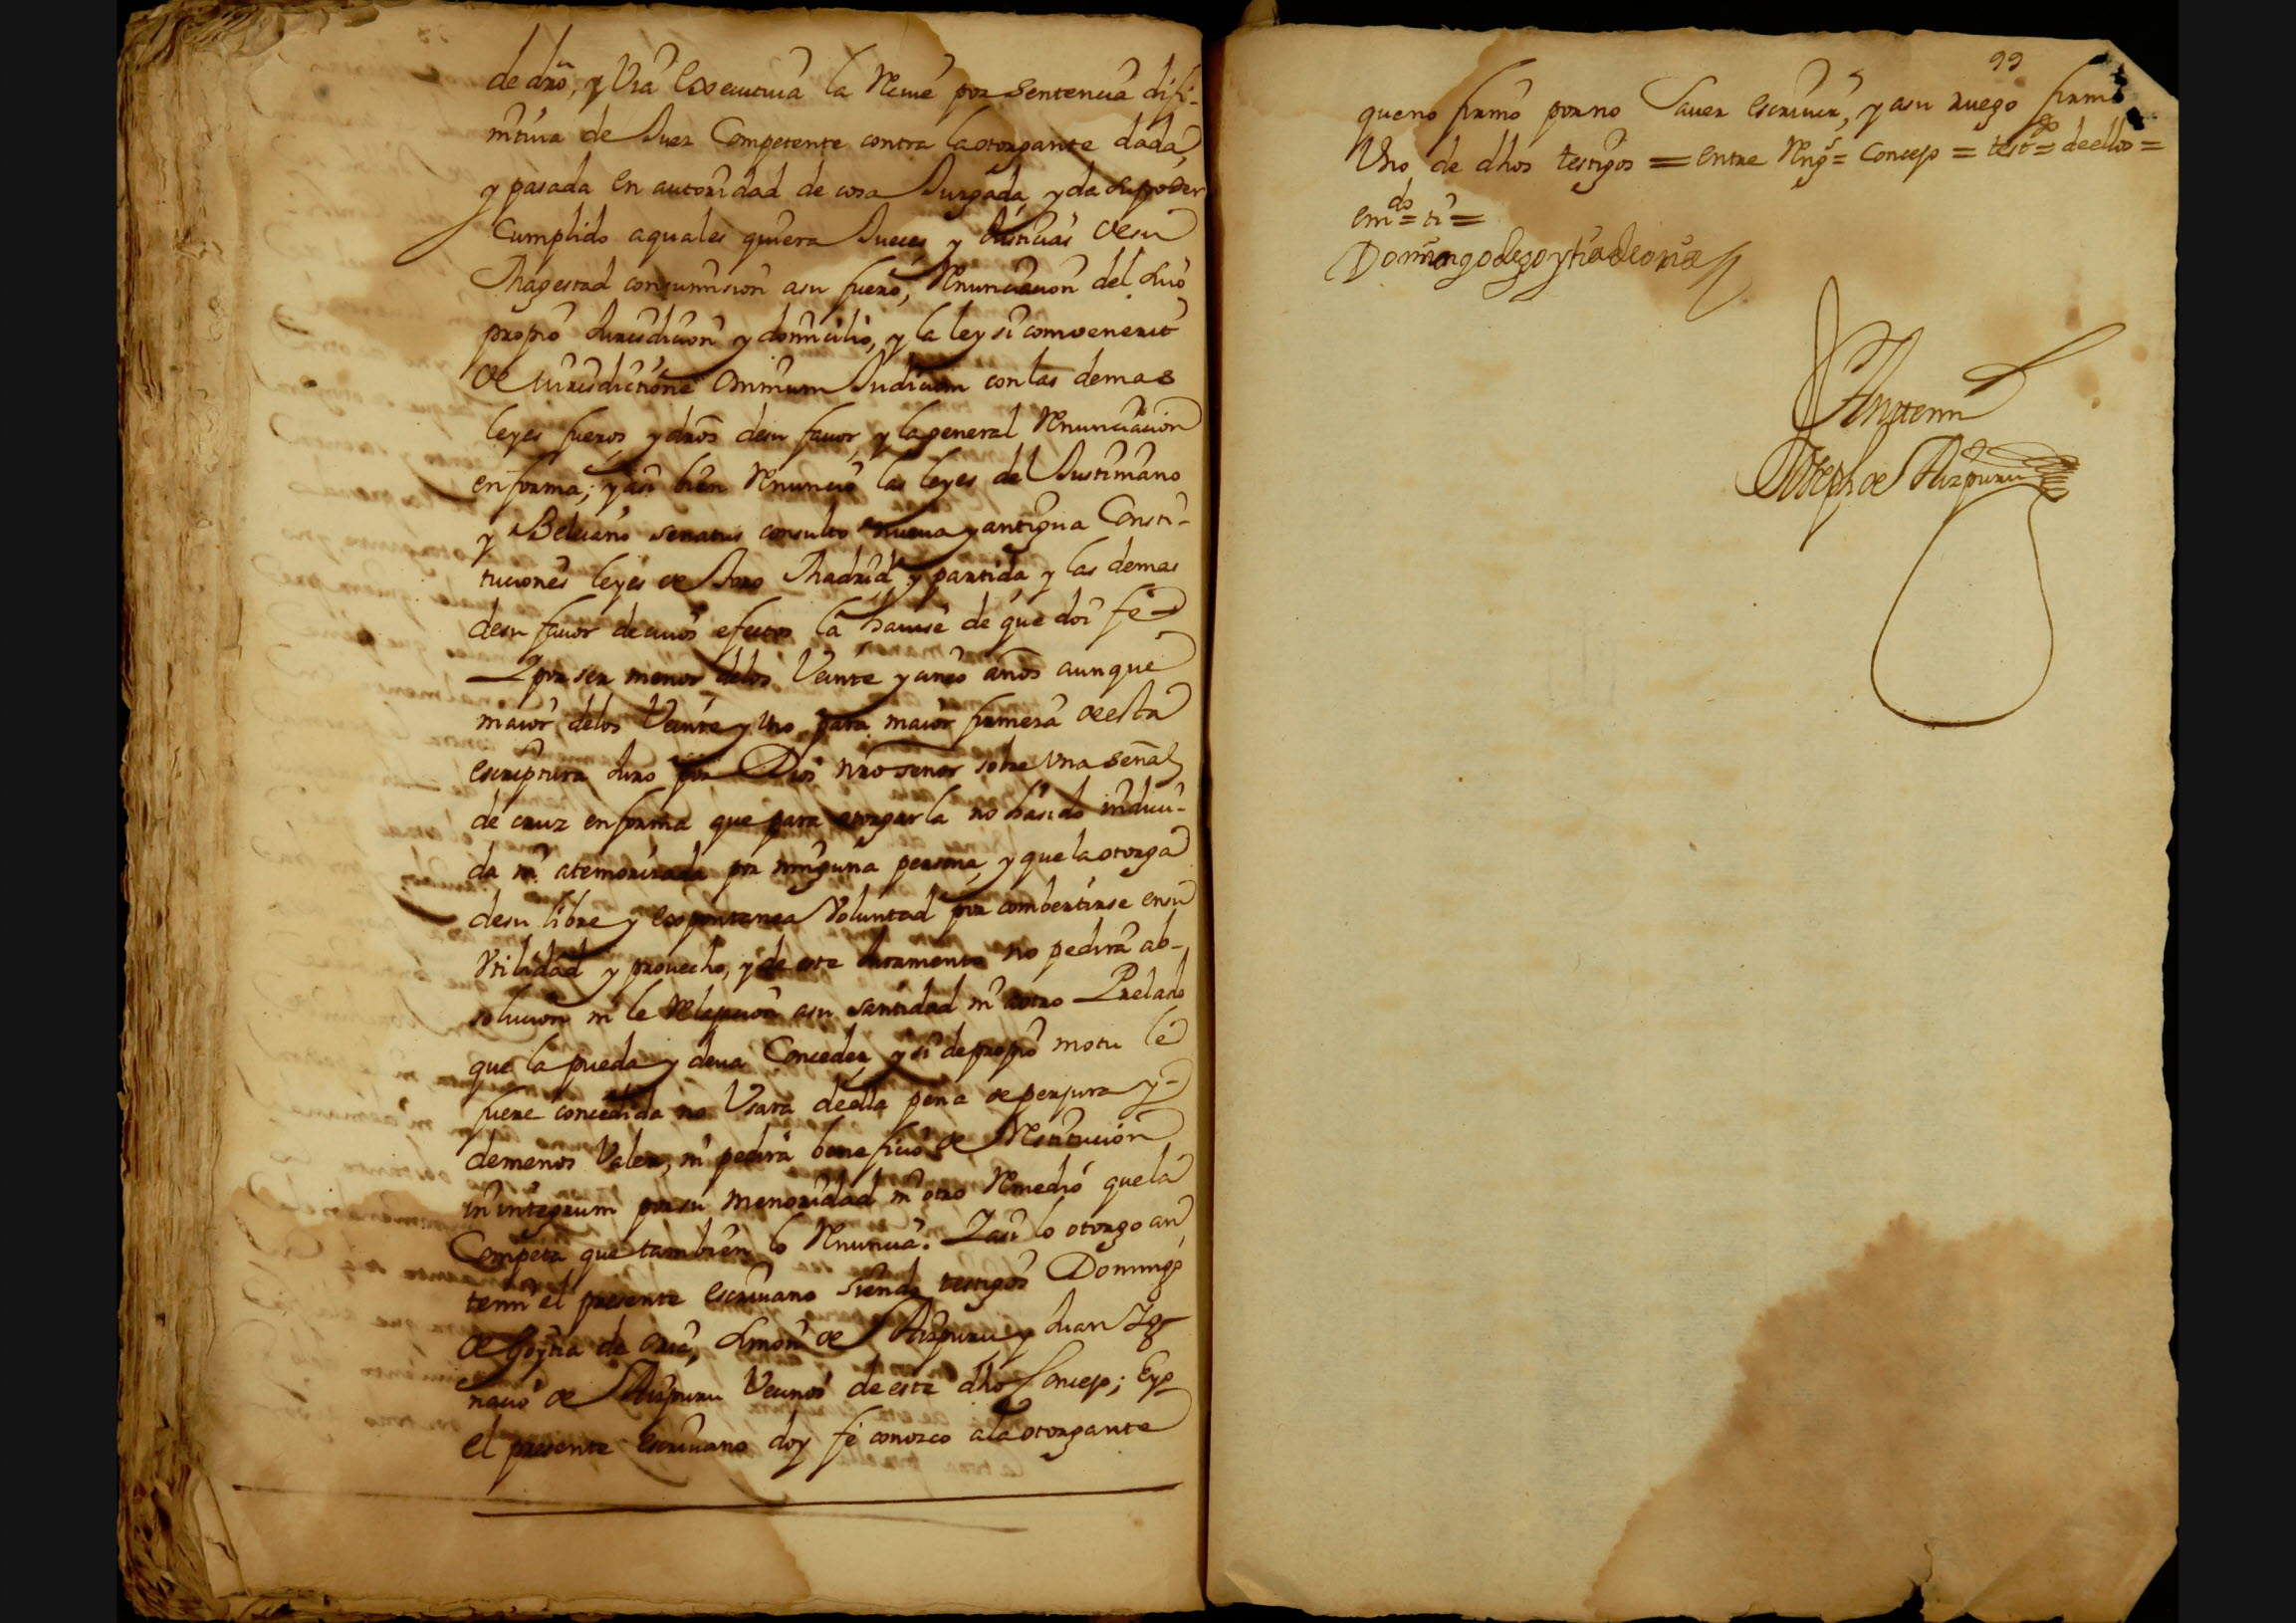 de dro, y Via Executiva la Reciue por Sentencia difi-
nitiua de Juez Competente contra la otorgante dada,
y pasada en autoridad de cosa Juzgada, y da su poder
Cumplido a quales quiera Jueces y Justicias de su
Magestad con sumision a su fuero, Renunciacion del suio
propio Jurisdicion y domicilio, y la ley si convenerit
de jurisdictione Omnium Judicum con las demas
leyes fueros, y dros de su fauor, y la general Renunciacion
en forma; y asi bien Renuncio las leyes del Justiniano
y Beleiano senatus consulto nueua y antigua Consti-
tuciones leyes de Toro Madrid y partida, y las demas
de su fauor de cuios efectos la hauise de que doi fe
Y por ser menor de los Veinte y cinco años aunque
maior de los Veinte y Uno, para maior firmeza de esta
escriptura Juro por Dios nro señor sobre Una señal
de cruz en forma que para otorgarla no ha sido induci-
da ni atemorizada por ninguna persona, y que la otorga
de su libre y expontanea Voluntad por combertirse en su
Vtilidad y prouecho, y de este Juramento no pedira ab-
solucion ni le Relajacion a su santidad ni a otro Prelado
que la pueda y deua Conceder, y si de propio motu le
fuere concedida no Vsara de ella pena de perjura y
de menos Valer, ni pedira beneficio de Restitucion
in integrum por su menoridad ni otro Remedio que la
Competa que tambien lo Renuncia. Y asi lo otorgo an
temi el presente escriuano siendo testigos Domingo
de Goytia de oria, Simon de Aizpuru y Juan Ig-
nacio de Aizpuru Vecinos de este dho Concejo; E yo
el presente escriuano doy fe conozco a la otorgante
99
que no firmo por no Sauer escriuir, y a su ruego firmo
Uno de dhos testigos = entre Rengs = Concejo = testgo = de ellos =
emdo = ti =
Domingo de goytia de oria
Antemi
Joseph de Aizpuru